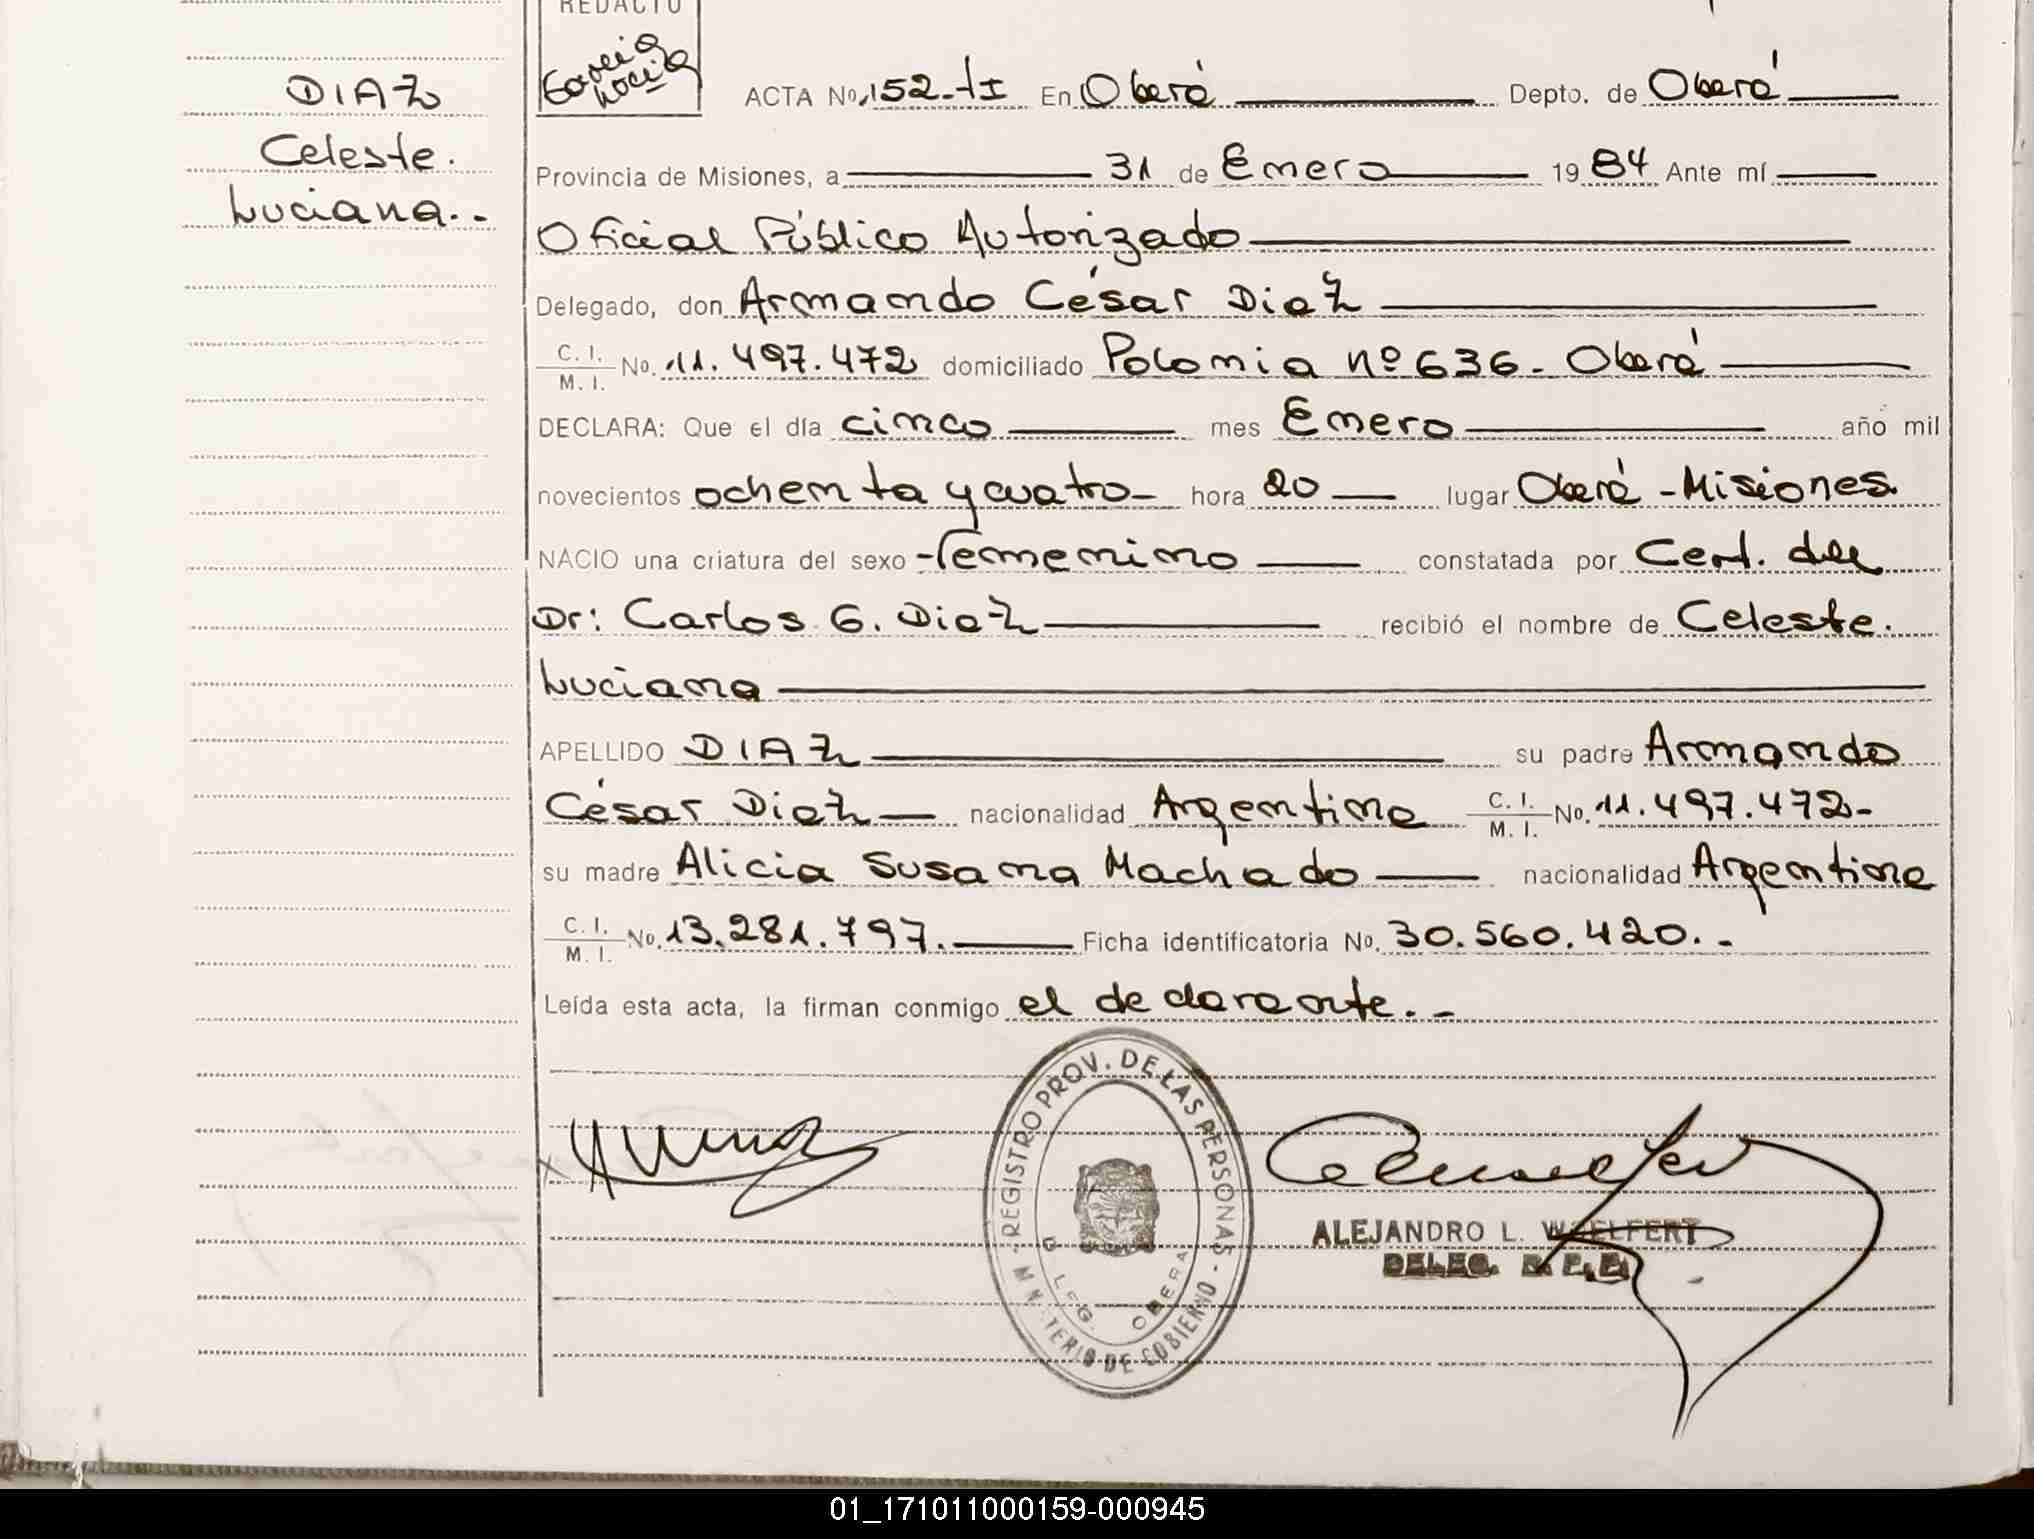 REDACTO
García
Lucía
DIAZ
Celeste.
Luciana.-
ACTA No. 152-tI En Oberá Depto. de Oberá
Provincia de Misiones, a 31 de Enero 1984 Ante mí
Oficial Público Autorizado
Delegado, don Armando César Diaz
C. I. / M. I. No. 11.497.472 domiciliado Polonia nº 636- Oberá
DECLARA: Que el día cinco mes Enero año mil
novecientos ochenta y cuatro- hora 20 lugar Oberá-Misiones
NACIO una criatura del sexo femenino constatada por Cert. del
Dr: Carlos G. Diaz recibió el nombre de Celeste.
Luciana
APELLIDO DIAZ su padre Armando
César Diaz nacionalidad Argentina C. I. / M. I. No. 11.497.472-
su madre Alicia Susana Machado nacionalidad Argentina
C. I. / M. I. No. 13.281.797. Ficha identificatoria No. 30.560.420.-
Leída esta acta, la firman conmigo el declarante.-
REGISTRO PROV. DE LAS PERSONAS - MINISTERIO DE GOBIERNO
DELEG. OBERA
ALEJANDRO L. WOELFERT
DELEG.
01_171011000159-000945